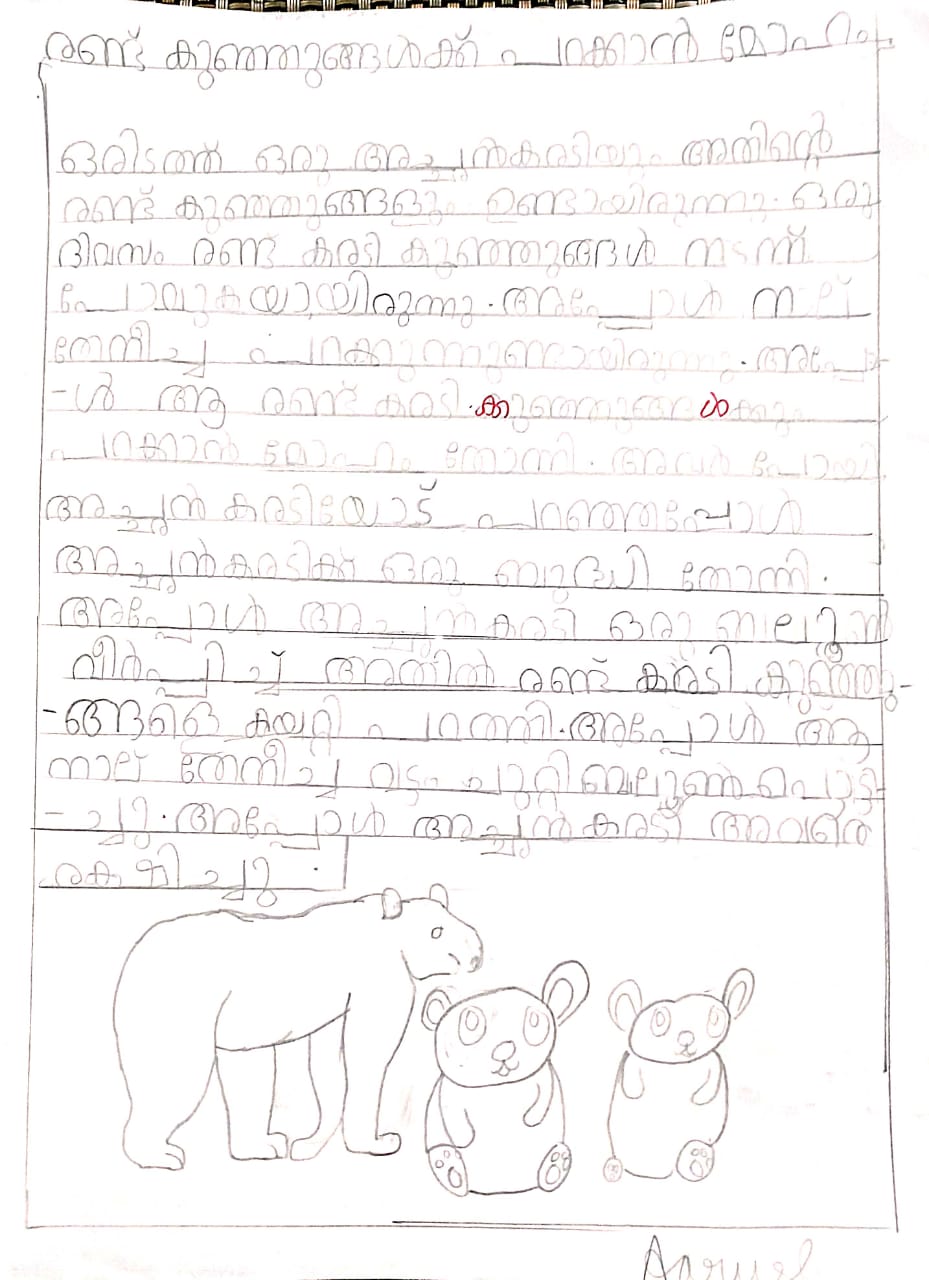 രണ്ട് കുഞ്ഞുങ്ങൾക്ക് പറക്കാൻ മോഹം
ഒരിടത്ത് ഒരു അച്ചൻകരടിയും അതിന്റെ
രണ്ട് കുഞ്ഞുങ്ങളും ഉണ്ടായിരുന്നു. ഒരു
ദിവസം രണ്ട് കരടി കുഞ്ഞുങ്ങൾ നടന്ന്
പോവുകയായിരുന്നു. അപ്പോൾ നാല്
തേനീച്ച പറക്കുന്നുണ്ടായിരുന്നു. അപ്പോ
-ൾ ആ രണ്ട് കരടി കുഞ്ഞുങ്ങൾക്കും
പറക്കാൻ മോഹം തോന്നി. അവർ പോയി
അച്ചൻ കരടിയോട് പറഞ്ഞപ്പോൾ
അച്ചൻകരടിക്ക് ഒരു ബുദ്ധി തോന്നി.
അപ്പോൾ അച്ചൻകരടി ഒരു ബലൂൺ
വീർപ്പിച്ച് അതിൽ രണ്ട് കരടി കുഞ്ഞു-
-ങ്ങളെ കയറ്റി പറത്തി. അപ്പോൾ ആ
നാല് തേനീച്ച വട്ടം ചുറ്റി ബലൂൺ പൊട്ടി
-ച്ചു. അപ്പോൾ അച്ചൻകരടി അവരെ
രക്ഷിച്ചു.